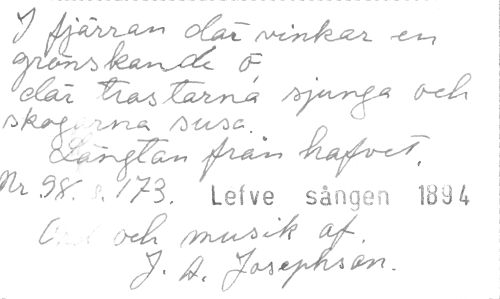 I fjärran där vinkar en
grönskande ö
där trastarna sjunga och
skogarna susa.
Längtan från hafvet.
Nr 98. s. 173. Lefve sången 1894
Ord och musik af
J. A. Josephson.